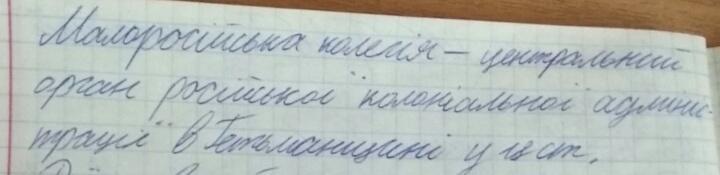 Малоросійська колегія – центральний
орган російської колоніальної адмініс-
трації в Гетьманщині у ст.